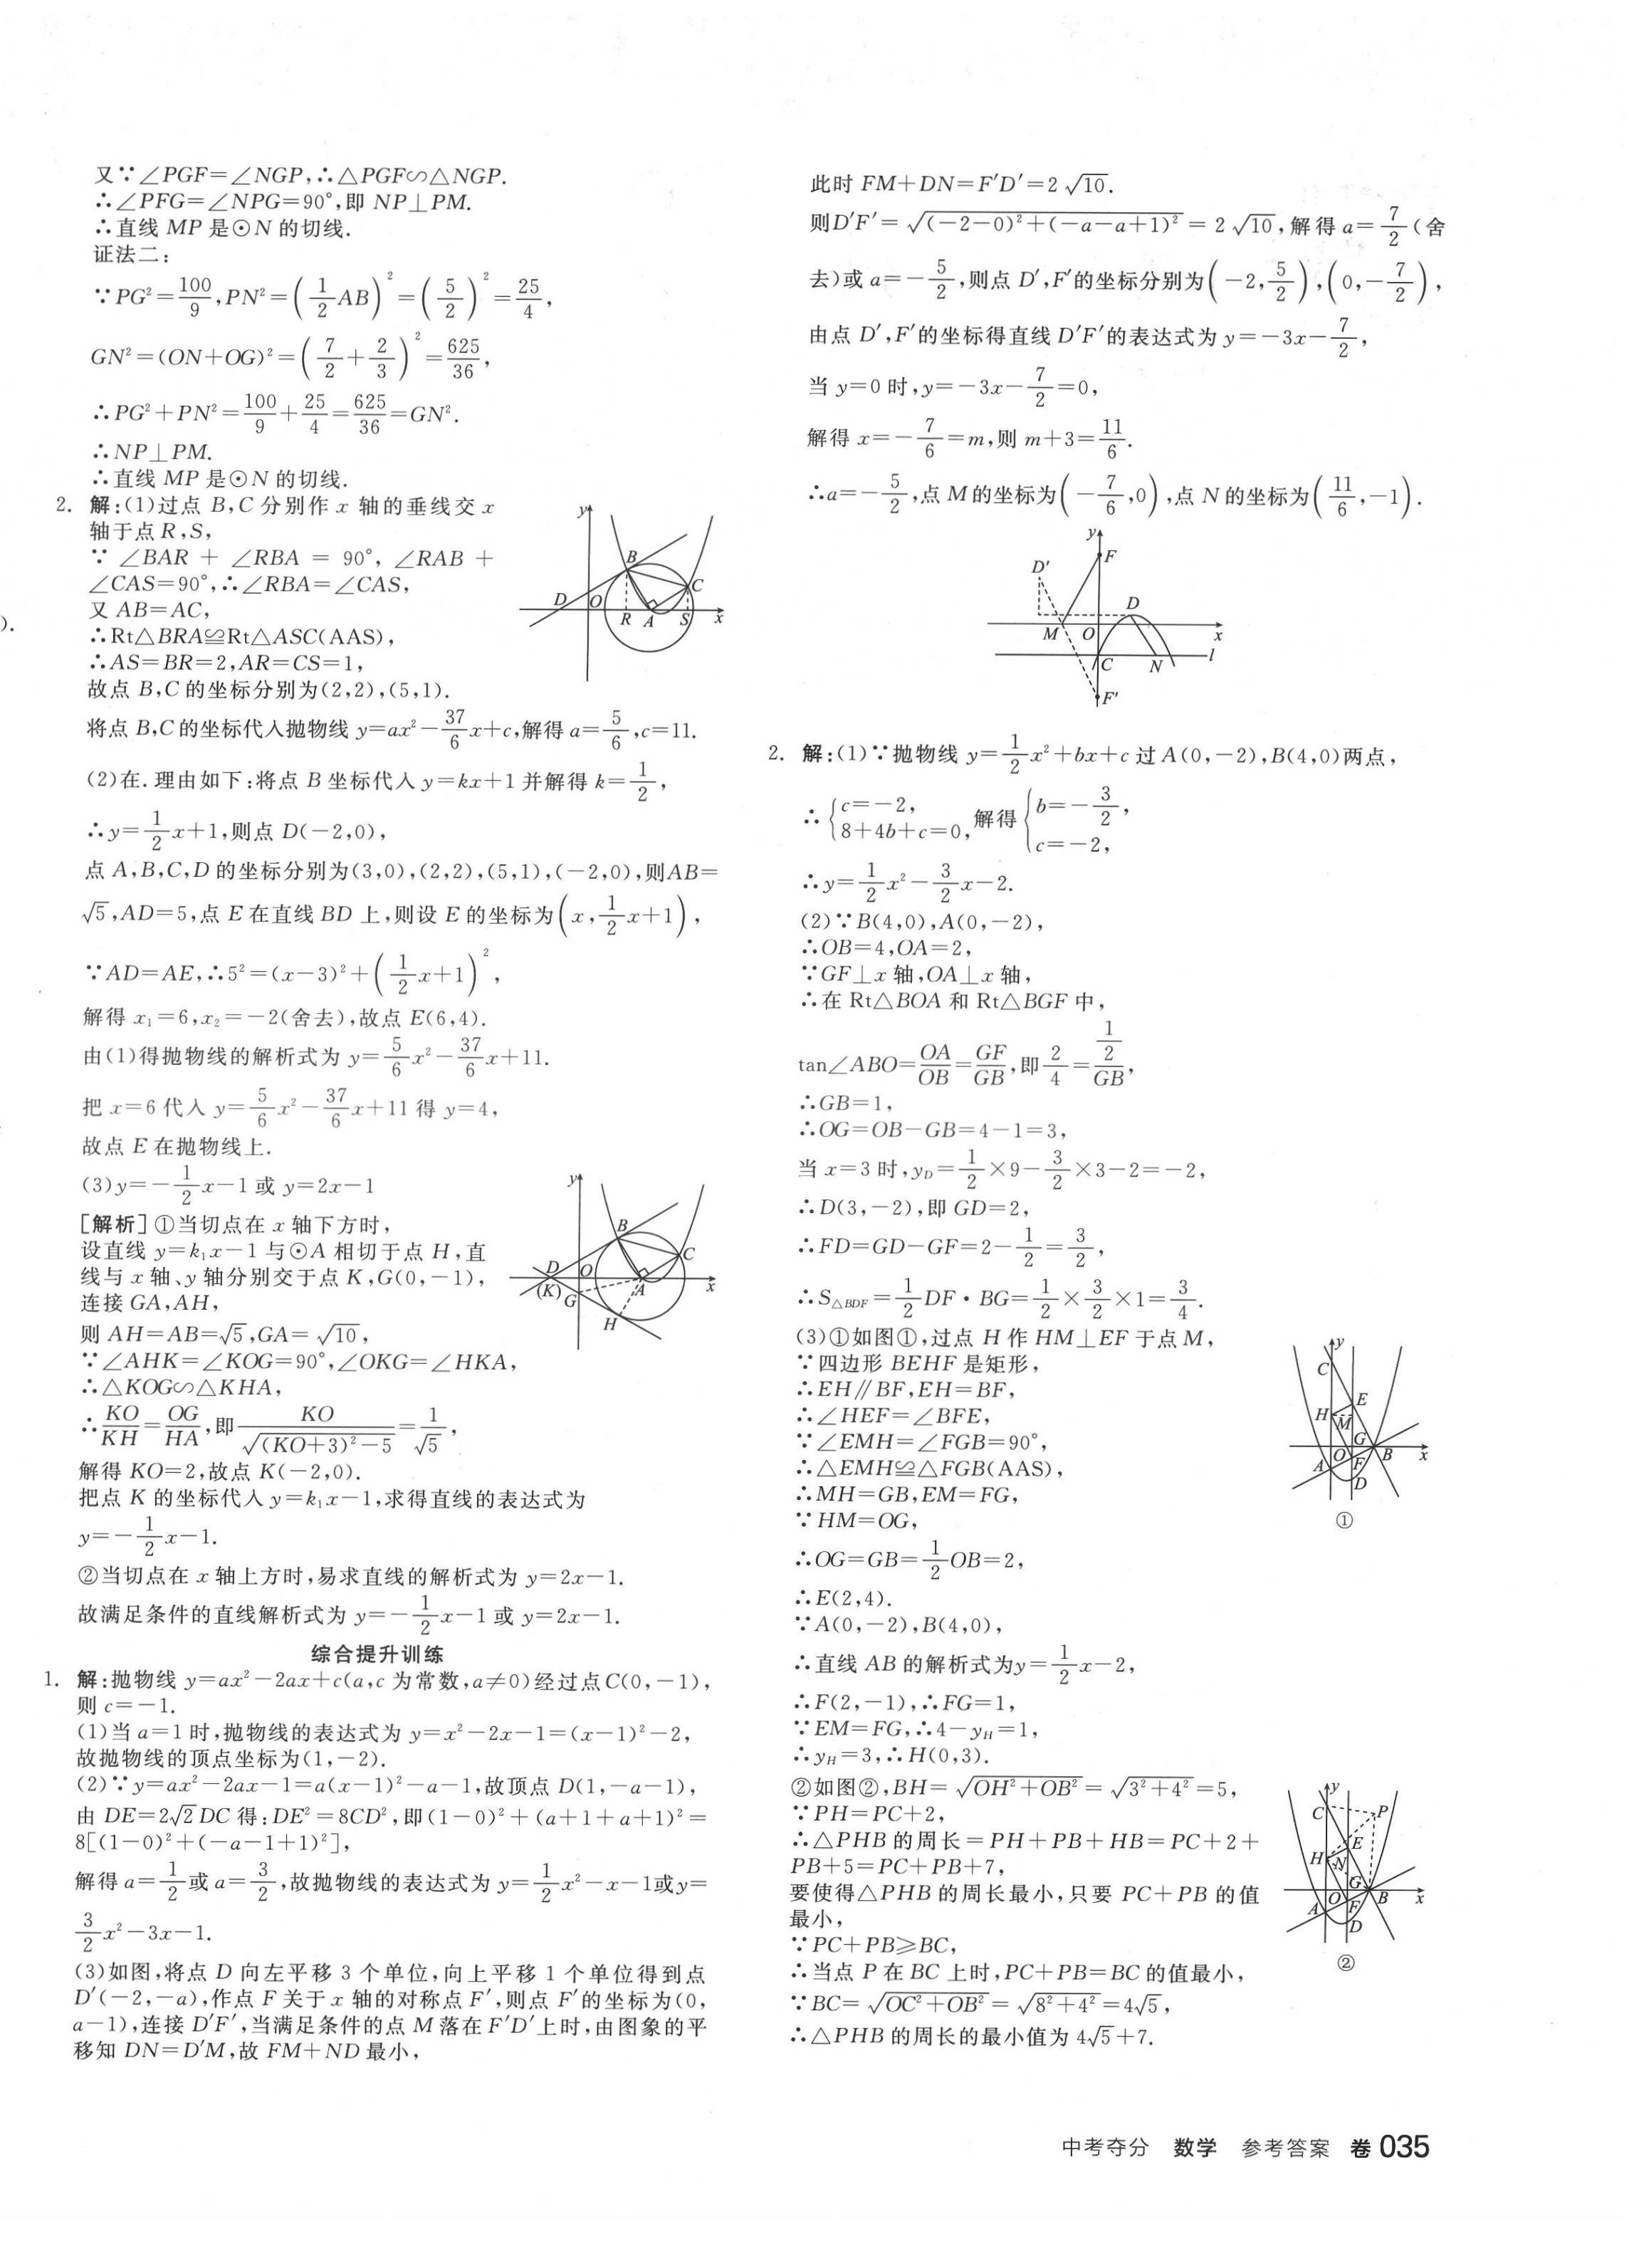 又∵∠PGF=∠NGP,∴△PGF∽△NGP.
∴∠PFG=∠NPG=90°,即 NP⊥PM.
∴直线 MP 是⊙N 的切线.
证法二:
∵PG²=100/9,PN²=(1/2AB)²=(5/2)²=25/4,
GN²=(ON+OG)²=(7/2+2/3)²=625/36,
∴PG²+PN²=100/9+25/4=625/36=GN².
∴NP⊥PM.
∴直线 MP 是⊙N 的切线.
2. 解:(1)过点 B,C 分别作 x 轴的垂线交 x
轴于点 R,S,
∵ ∠BAR + ∠RBA = 90°, ∠RAB +
∠CAS=90°,∴∠RBA=∠CAS,
又 AB=AC,
∴Rt△BRA≌Rt△ASC(AAS),
∴AS=BR=2,AR=CS=1,
故点 B,C 的坐标分别为(2,2),(5,1).
y B C D O R A S x
将点 B,C 的坐标代入抛物线 y=ax²-37/6x+c,解得 a=5/6,c=11.
(2)在. 理由如下:将点 B 坐标代入 y=kx+1 并解得 k=1/2,
∴y=1/2x+1,则点 D(-2,0),
点 A,B,C,D 的坐标分别为(3,0),(2,2),(5,1),(-2,0),则AB=
√5,AD=5,点 E 在直线 BD 上,则设 E 的坐标为(x,1/2x+1),
∵AD=AE,∴5²=(x-3)²+(1/2x+1)²,
解得 x₁=6,x₂=-2(舍去),故点 E(6,4).
由(1)得抛物线的解析式为 y=5/6x²-37/6x+11.
把 x=6 代入 y=5/6x²-37/6x+11 得 y=4,
故点 E 在抛物线上.
(3)y=-1/2x-1 或 y=2x-1
[解析] ①当切点在 x 轴下方时,
设直线 y=k₁x-1 与⊙A 相切于点 H,直
线与 x 轴、y 轴分别交于点 K,G(0,-1),
连接 GA,AH,
则 AH=AB=√5,GA=√10,
∵∠AHK=∠KOG=90°,∠OKG=∠HKA,
∴△KOG∽△KHA,
y B C D O (K) G A x H
∴KO/KH=OG/HA,即KO/√((KO+3)²-5)=1/√5,
解得 KO=2,故点 K(-2,0).
把点 K 的坐标代入 y=k₁x-1,求得直线的表达式为
y=-1/2x-1.
②当切点在 x 轴上方时,易求直线的解析式为 y=2x-1.
故满足条件的直线解析式为 y=-1/2x-1 或 y=2x-1.
综合提升训练
1. 解:抛物线 y=ax²-2ax+c(a,c 为常数,a≠0)经过点C(0,-1),
则 c=-1.
(1)当 a=1 时,抛物线的表达式为 y=x²-2x-1=(x-1)²-2,
故抛物线的顶点坐标为(1,-2).
(2)∵y=ax²-2ax-1=a(x-1)²-a-1,故顶点 D(1,-a-1),
由 DE=2√2DC 得:DE²=8CD²,即(1-0)²+(a+1+a+1)²=
8[(1-0)²+(-a-1+1)²],
解得 a=1/2或 a=3/2,故抛物线的表达式为 y=1/2x²-x-1或y=
3/2x²-3x-1.
(3)如图,将点 D 向左平移 3 个单位,向上平移 1 个单位得到点
D′(-2,-a),作点 F 关于 x 轴的对称点 F′,则点 F′的坐标为(0,
a-1),连接 D′F′,当满足条件的点 M 落在 F′D′上时,由图象的平
移知 DN=D′M,故 FM+ND 最小,
).
此时 FM+DN=F′D′=2√10.
则D′F′=√((-2-0)²+(-a-a+1)²)=2√10,解得 a=7/2(舍
去)或 a=-5/2,则点 D′,F′的坐标分别为(-2,5/2),(0,-7/2),
由点 D′,F′的坐标得直线 D′F′的表达式为 y=-3x-7/2,
当 y=0 时,y=-3x-7/2=0,
解得 x=-7/6=m,则 m+3=11/6.
∴a=-5/2,点 M 的坐标为(-7/6,0),点 N 的坐标为(11/6,-1).
y F D′ D M O x C N l F′
2. 解:(1)∵抛物线 y=1/2x²+bx+c 过 A(0,-2),B(4,0)两点,
∴{c=-2, 8+4b+c=0, 解得{b=-3/2, c=-2,
∴y=1/2x²-3/2x-2.
(2)∵B(4,0),A(0,-2),
∴OB=4,OA=2,
∵GF⊥x 轴,OA⊥x 轴,
∴在 Rt△BOA 和 Rt△BGF 中,
tan∠ABO=OA/OB=GF/GB,即2/4=(1/2)/GB,
∴GB=1,
∴OG=OB-GB=4-1=3,
当 x=3 时,y_D=1/2×9-3/2×3-2=-2,
∴D(3,-2),即 GD=2,
∴FD=GD-GF=2-1/2=3/2,
∴S△BDF=1/2DF·BG=1/2×3/2×1=3/4.
(3)①如图①,过点 H 作 HM⊥EF 于点 M,
∵四边形 BEHF 是矩形,
∴EH∥BF,EH=BF,
∴∠HEF=∠BFE,
∵∠EMH=∠FGB=90°,
∴△EMH≌△FGB(AAS),
∴MH=GB,EM=FG,
∵HM=OG,
∴OG=GB=1/2OB=2,
∴E(2,4).
∵A(0,-2),B(4,0),
y C E H M G O F B x A D
①
∴直线 AB 的解析式为y=1/2x-2,
∴F(2,-1),∴FG=1,
∵EM=FG,∴4-y_H=1,
∴y_H=3,∴H(0,3).
②如图②,BH=√(OH²+OB²)=√(3²+4²)=5,
∵PH=PC+2,
∴△PHB 的周长=PH+PB+HB=PC+2+
PB+5=PC+PB+7,
要使得△PHB 的周长最小,只要 PC+PB 的值
最小,
∵PC+PB≥BC,
∴当点 P 在 BC 上时,PC+PB=BC 的值最小,
∵BC=√(OC²+OB²)=√(8²+4²)=4√5,
∴△PHB 的周长的最小值为 4√5+7.
y C P E H N G O F B x A D
②
中考夺分 数学 参考答案 卷 035